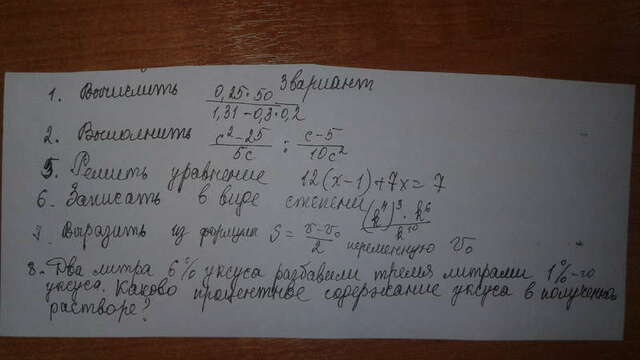 3 вариант
1. Вычислить (0,25·50)/(1,31-0,3·0,2)
2. Выполнить (c²-25)/(5c) : (c-5)/(10c²)
5. Решить уравнение 12(x-1)+7x=7
6. Записать в виде степени
7. Выразить из формулы переменную v₀
8. Два литра 6% уксуса разбавили тремя литрами 1%-го
уксуса. Каково процентное содержание уксуса в
растворе?